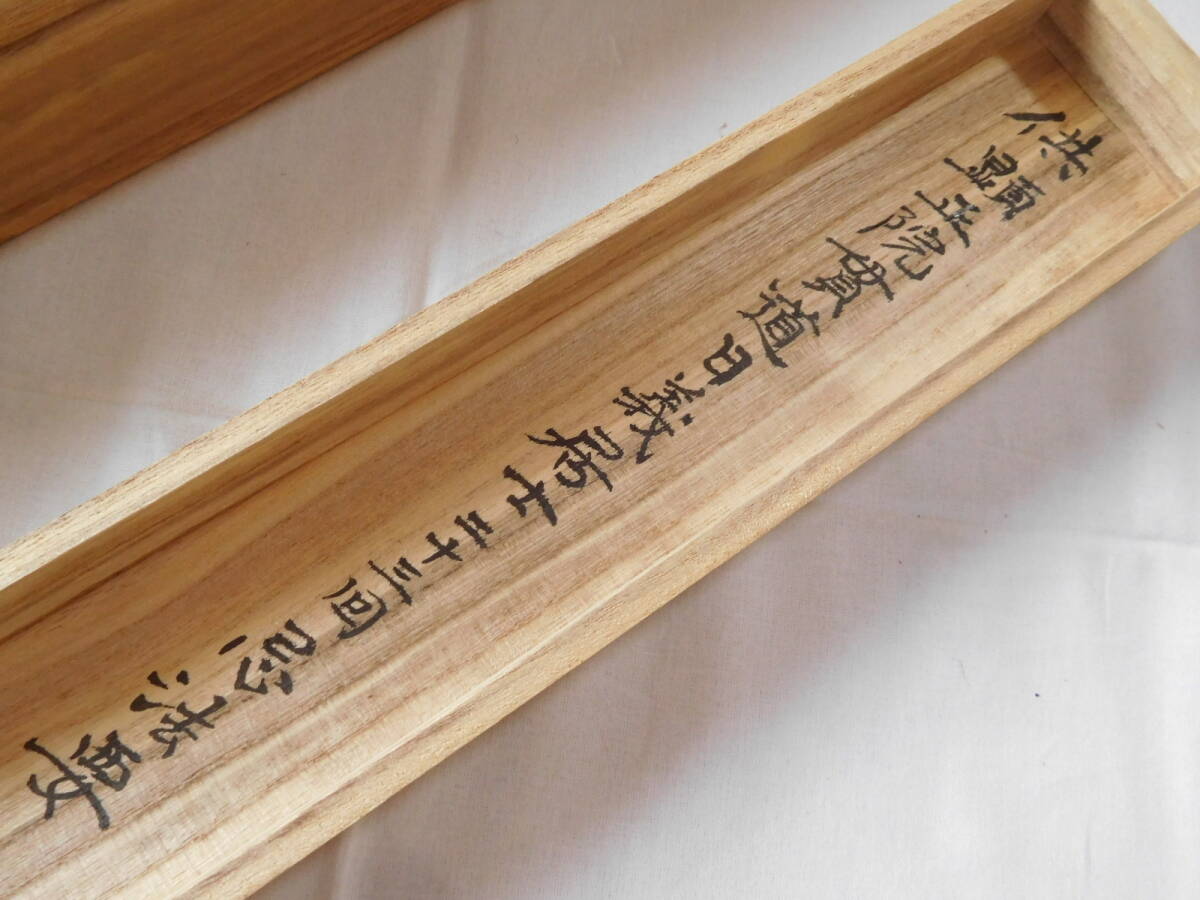 供
顕正院貫道日義居士三十三回忌法要